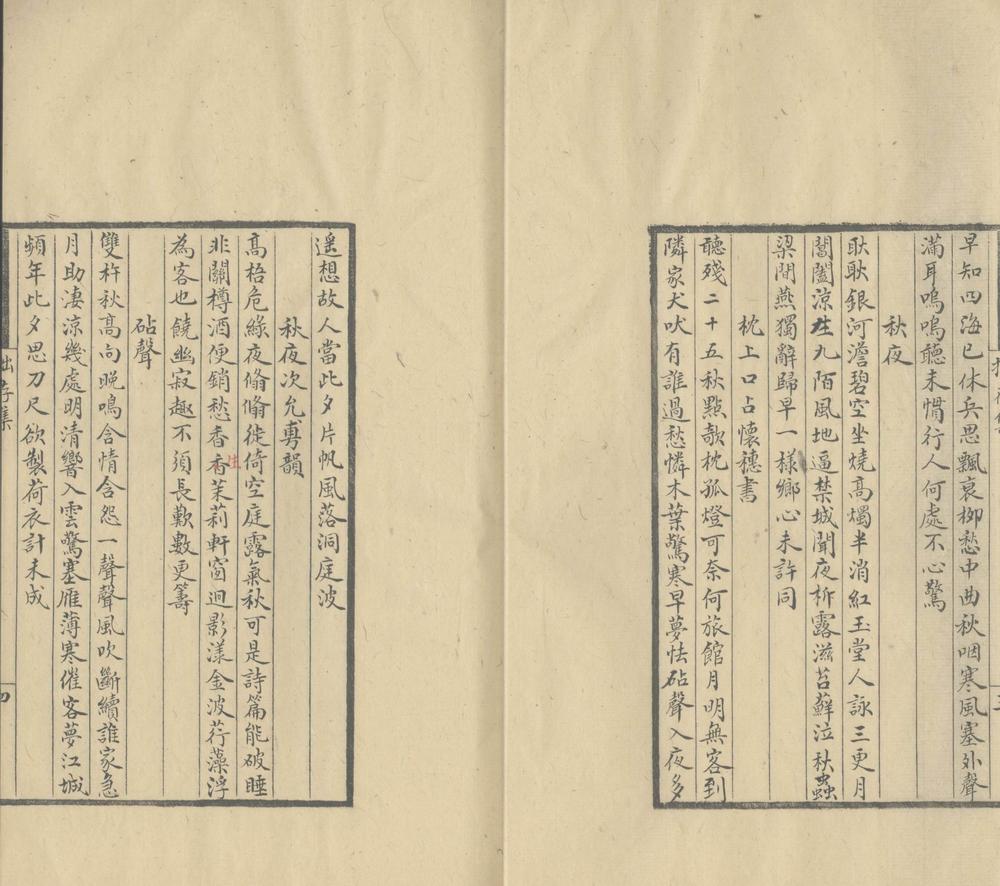 早知四海已休兵思飄哀柳愁中曲秋咽寒風塞外聲
滿耳嗚嗚聽未慣行人何處不心驚
秋夜
耿耿銀河澹碧空坐燒高燭半消紅玉堂人詠三更月
閶闔涼生九陌風地逼禁城聞夜柝露滋苔蘚泣秋蟲
梁間燕獨辭歸早一樣鄉心未許同
枕上口占懷穗書
聽殘二十五秋點欹枕孤燈可奈何旅館月明無客到
隣家犬吠有誰過愁憐木葉驚寒早夢怯砧聲入夜多
三
遥想故人當此夕片帆風落洞庭波
秋夜次允専韻
高梧危綠夜翛翛徙倚空庭露氣秋可是詩篇能破睡
非關樽酒便銷愁香香茉莉軒窗迥影漾金波荇藻浮
住
為客也饒幽寂趣不須長歎數更籌
砧聲
雙杵秋高向晚鳴含情含怨一聲聲風吹斷續誰家急
月助淒涼幾處明清響入雲驚塞雁薄寒催客夢江城
頻年此夕思刀尺欲製荷衣計未成
集
四